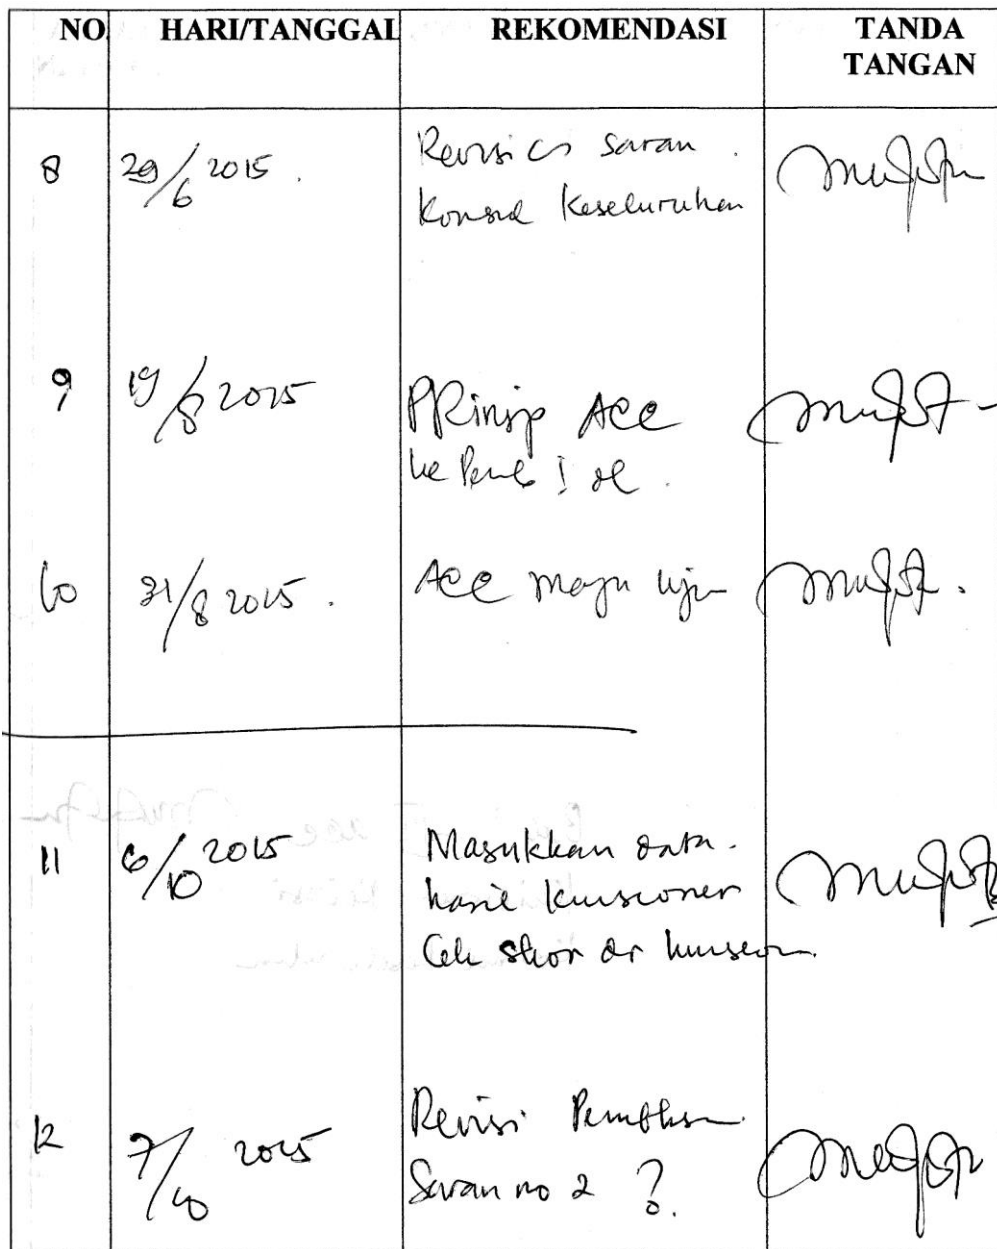 NO HARI/TANGGAL REKOMENDASI TANDA TANGAN
8 29/6 2015. Revisi cs saran.
Konsul Keseluruhan
9 19/8 2015 PRinsip Acc
ke Pemb I dl.
10 31/8 2015. Acc maju ujin
11 6/10 2015 Masukkan data.
hasil kuisioner
Cek skor dr kuiseon
12 7/10 2015 Revisi
Saran no 2 ?